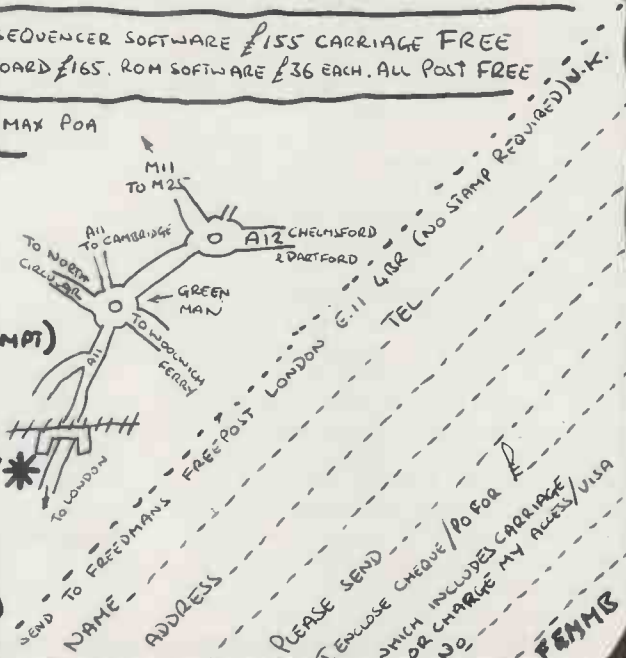 SEQUENCER SOFTWARE £155 CARRIAGE FREE
OARD £165. ROM SOFTWARE £36 EACH. ALL POST FREE
MAX POA
M11
TO M25
A12 CHELMSFORD
& DARTFORD
A11
TO CAMBRIDGE
TO NORTH
CIRCULAR
GREEN
MAN
TO WOOLWICH
FERRY
MPT)
A11
TO LONDON
SEND TO FREEDMANS FREEPOST LONDON E.11 4BR (NO STAMP REQUIRED) U.K.
NAME TEL
ADDRESS
PLEASE SEND
I ENCLOSE CHEQUE/PO FOR £
WHICH INCLUDES CARRIAGE
OR CHARGE MY ACCESS/VISA
NO